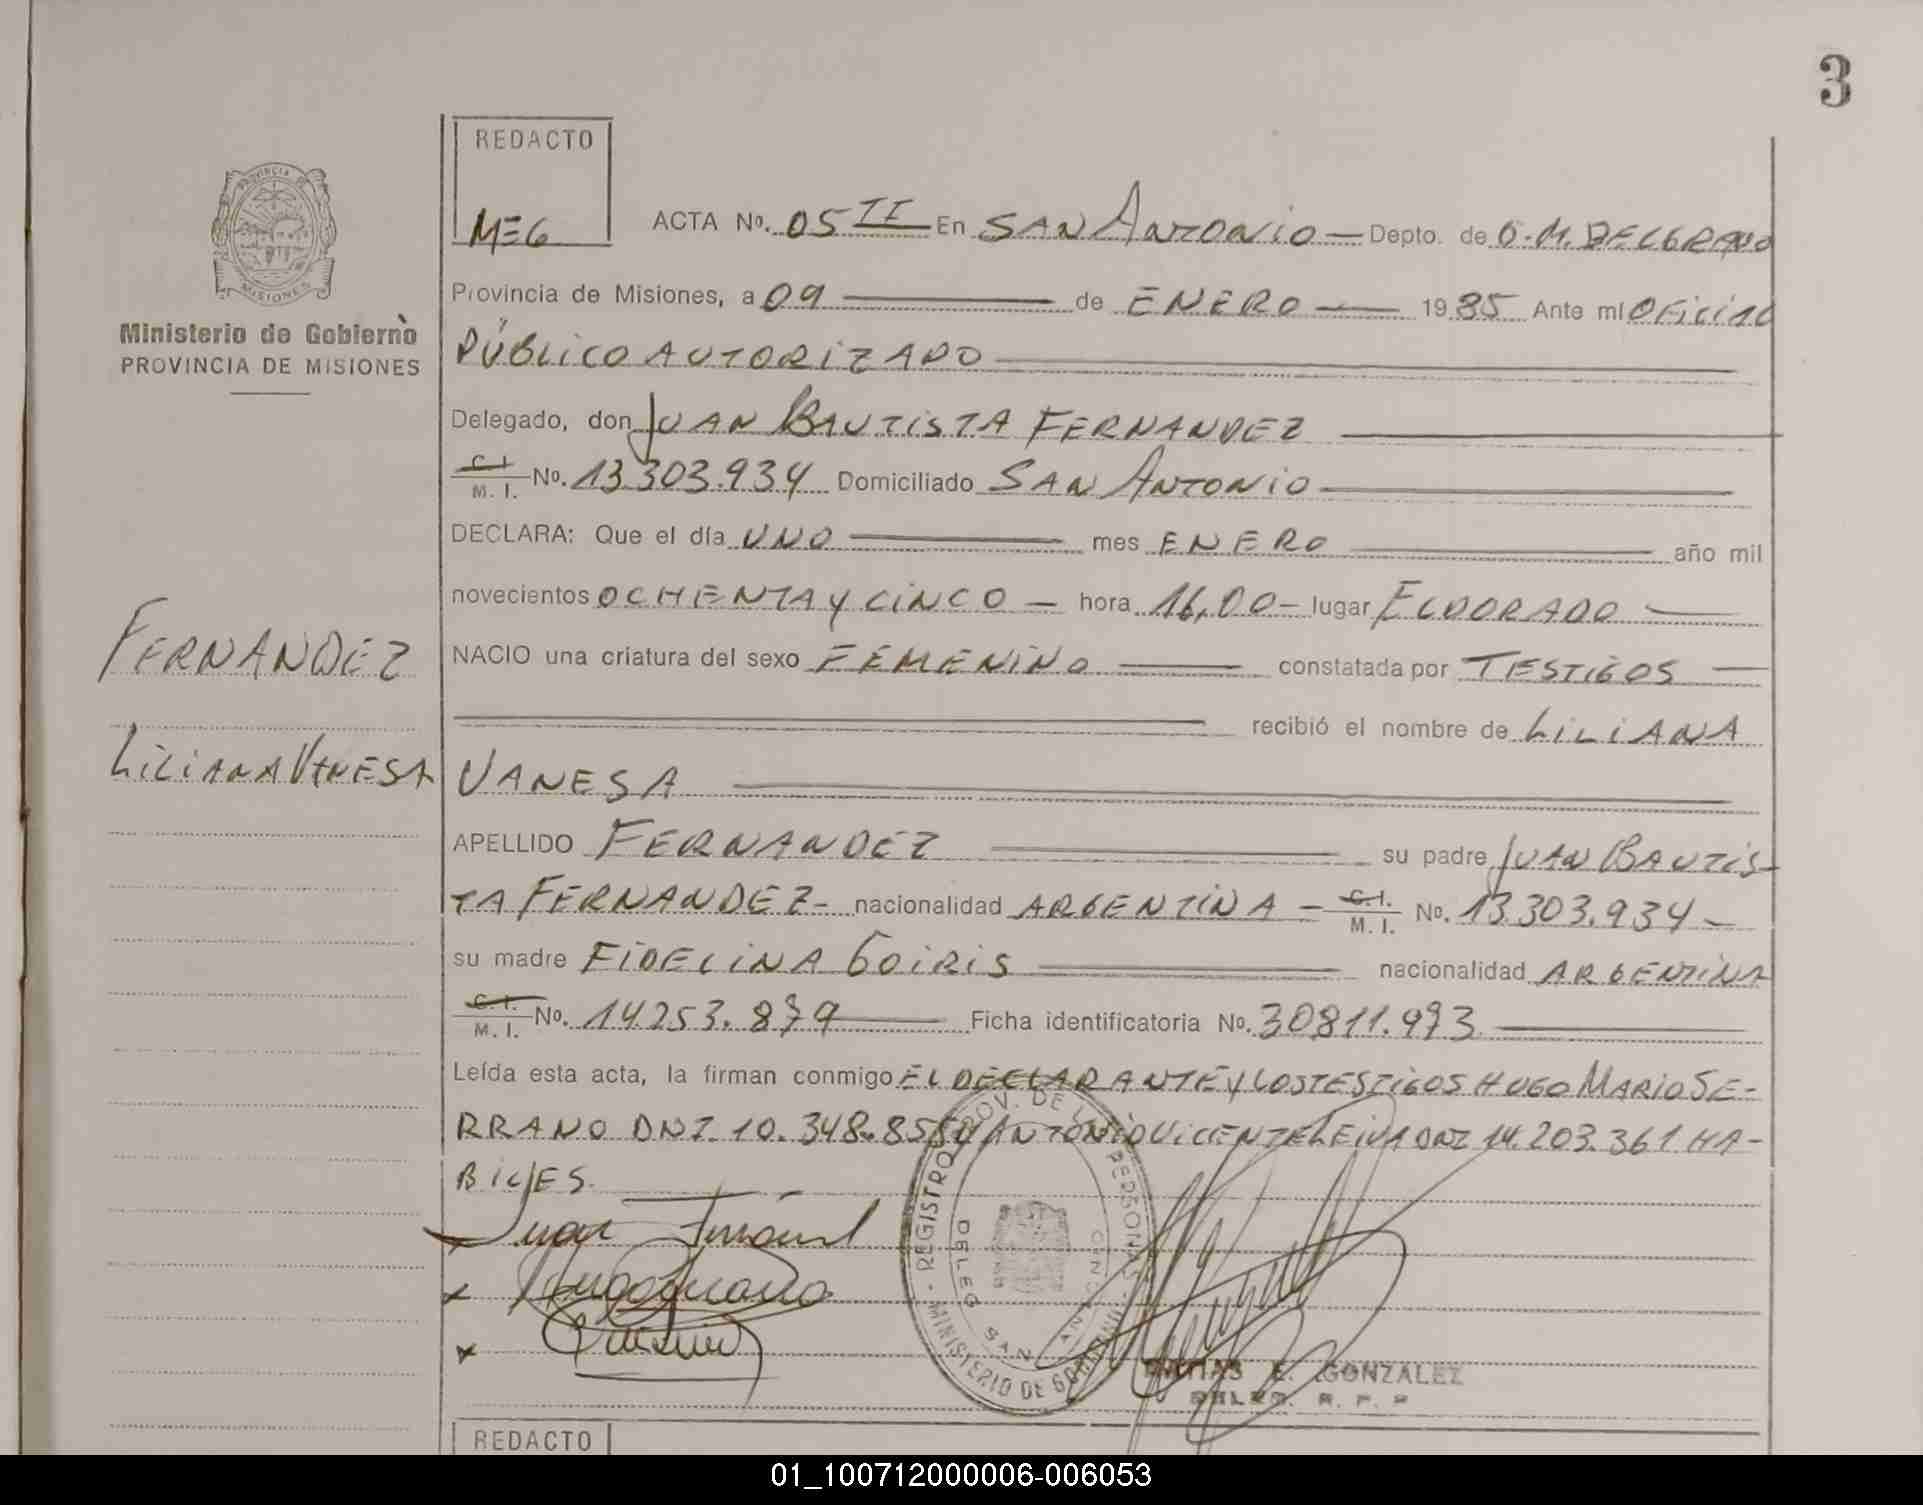 3
REDACTO
MEG
ACTA Nº. 05 II En SAN ANTONIO Depto. de G. M. BELGRANO
PROVINCIA DE MISIONES
Ministerio de Gobierno
PROVINCIA DE MISIONES
Provincia de Misiones, a 09 de ENERO 1985 Ante mí OFICIAL
PÚBLICO AUTORIZADO
Delegado, don JUAN BAUTISTA FERNANDEZ
C. I. / M. I. Nº. 13.303.934 Domiciliado SAN ANTONIO
DECLARA: Que el día UNO mes ENERO año mil
novecientos OCHENTA Y CINCO hora 16,00 lugar ELDORADO
NACIO una criatura del sexo FEMENINO constatada por TESTIGOS
FERNANDEZ
recibió el nombre de LILIANA
LILIANA VANESA
VANESA
APELLIDO FERNANDEZ su padre JUAN BAUTIS-
TA FERNANDEZ- nacionalidad ARGENTINA - C. I. / M. I. Nº. 13.303.934
su madre FIDELINA GOIRIS nacionalidad ARGENTINA
C. I. / M. I. Nº. 14.253.879 Ficha identificatoria Nº. 30811.973
Leída esta acta, la firman conmigo EL DECLARANTE Y LOS TESTIGOS HUGO MARIO SE-
RRANO DNI. 10.348.858 Y ANTONIO VICENTE LEIVA DNI 14.203.361 HA-
BILES.
REGISTRO PROV. DE LAS PERSONAS
MINISTERIO DE GOBIERNO
DELEG SAN ANTONIO
E. GONZALEZ
DELEG. R. P. P
REDACTO
01_100712000006-006053